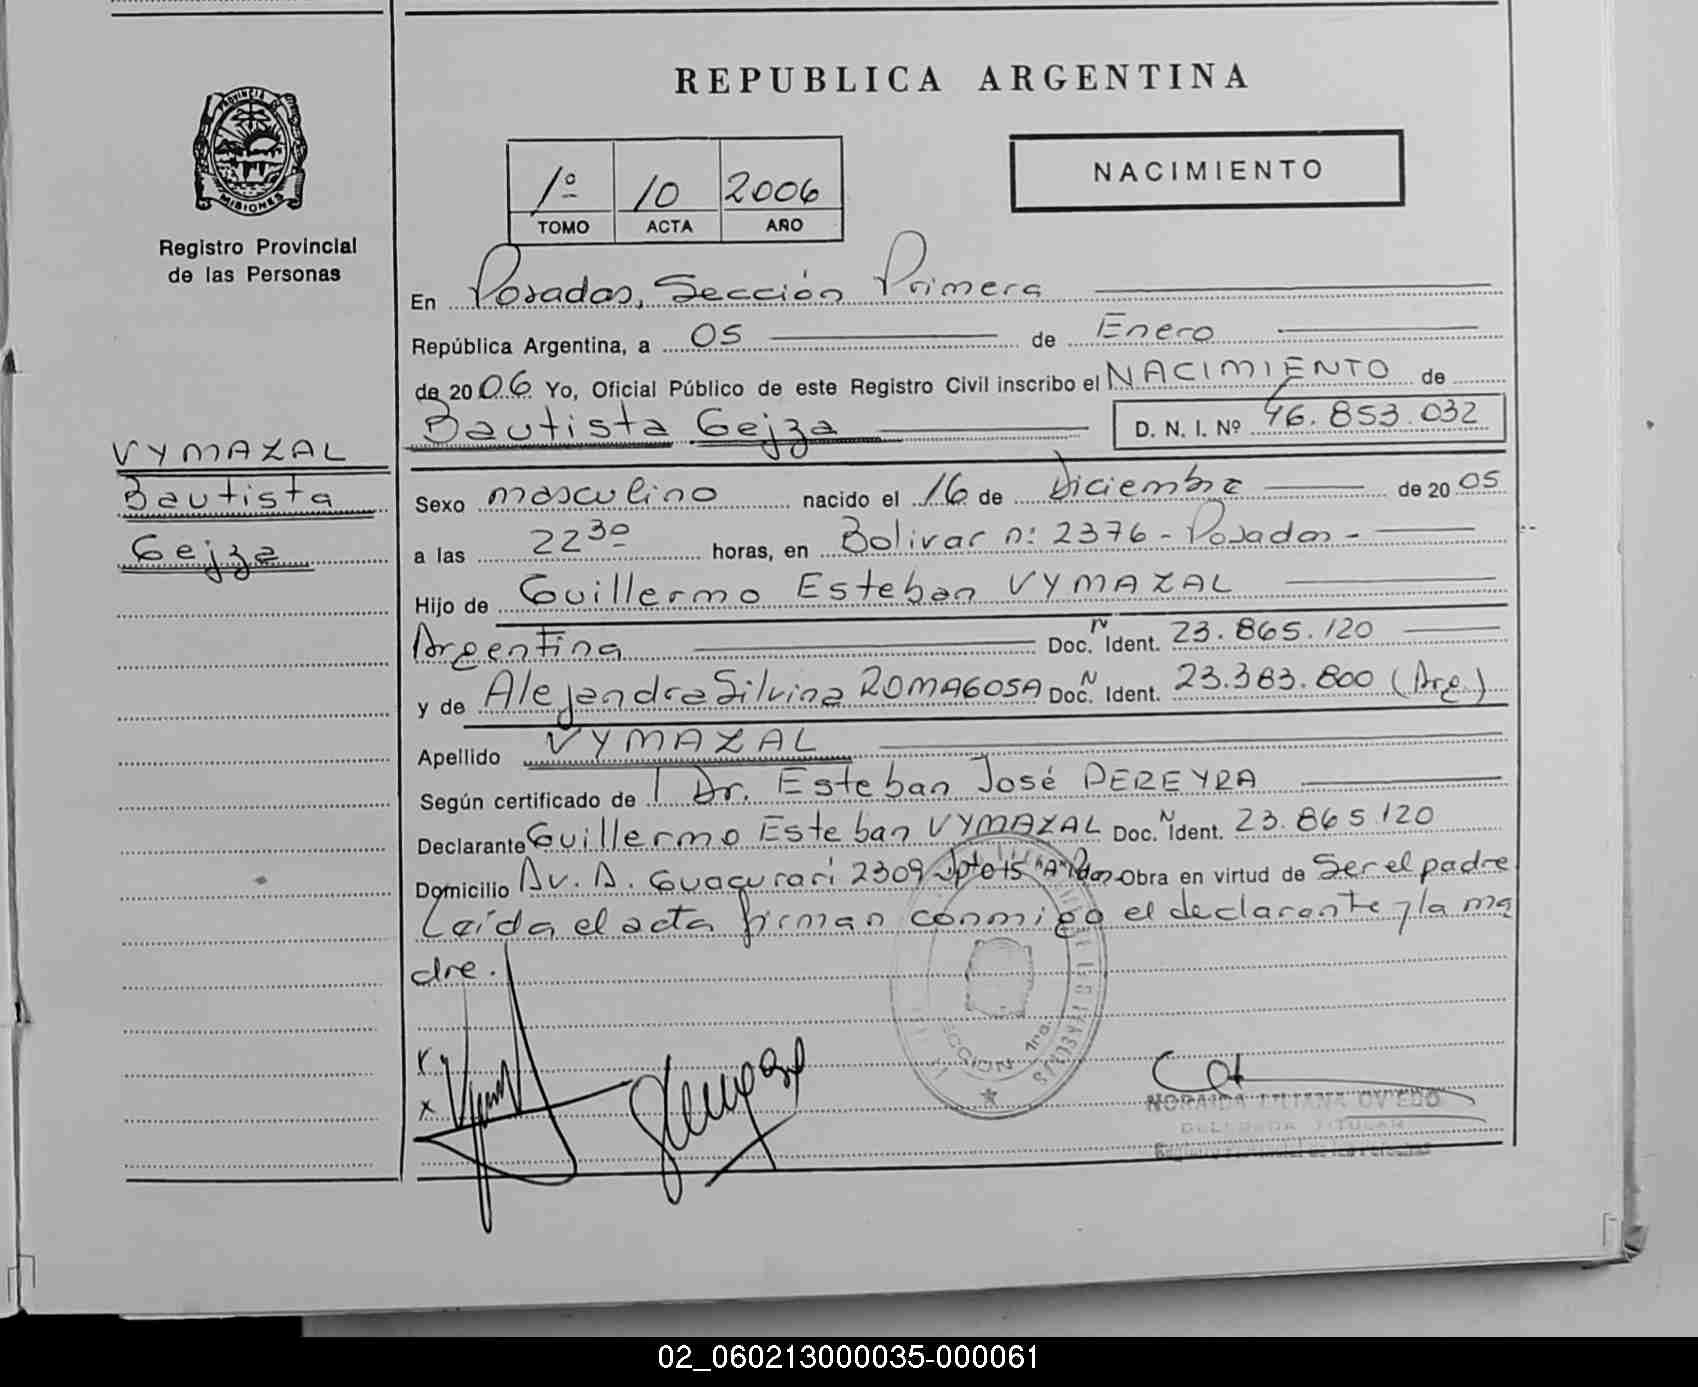 REPUBLICA ARGENTINA
PROVINCIA DE
MISIONES
Registro Provincial
de las Personas
1º 10 2006
TOMO ACTA AÑO
NACIMIENTO
En Posadas, Sección Primera
República Argentina, a 05 de Enero
de 2006 Yo, Oficial Público de este Registro Civil inscribo el NACIMIENTO de
Bautista Gejza D. N. I. Nº 46.853.032
VYMAZAL
Bautista
Gejza
Sexo masculino nacido el 16 de Diciembre de 2005
a las 22 30 horas, en Bolivar nº 2376 - Posadas -
Hijo de Guillermo Esteban VYMAZAL
Argentina Doc. N Ident. 23.865.120
y de Alejandra Silvina ROMAGOSA Doc. N Ident. 23.383.800 (Arg.)
Apellido VYMAZAL
Según certificado de Dr. Esteban José PEREYRA
Declarante Guillermo Esteban VYMAZAL Doc. N Ident. 23.865.120
Domicilio Av. A. Guaçurari 2309 Dpto 15 "A" Pdas Obra en virtud de Ser el padre
Leída el acta firman conmigo el declarante y la ma
dre.
SECCION 1ra.
x
NORAIDA LILIANA OVIEDO
DELEGADA TITULAR
Registro Provincial de las Personas
02_060213000035-000061